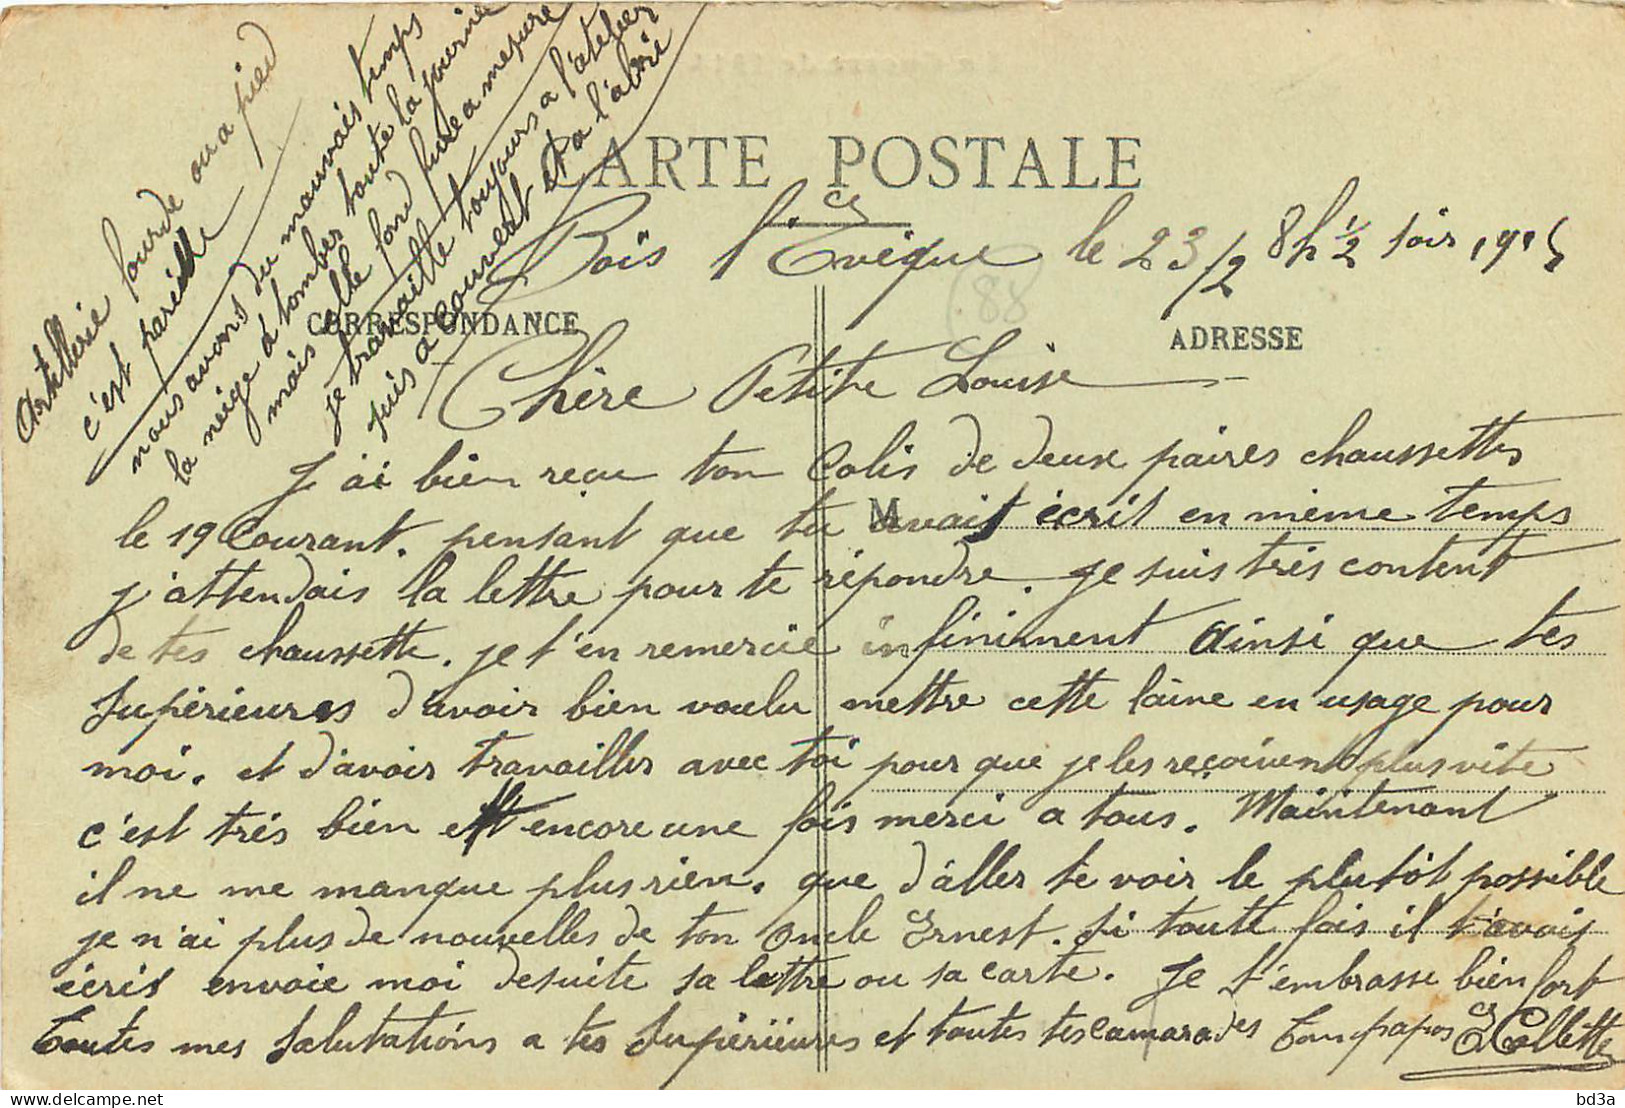 CARTE POSTALE
Bois l'Evêque le 23/2 8h ½ soir 1915
CORRESPONDANCE
ADRESSE
88
Chère Petite Louise
J'ai bien reçu ton Colis de deux paires chaussettes
le 19 Courant. pensant que tu M avais écrit en même temps
j'attendais la lettre pour te répondre. je suis très content
de tes chaussette. je t'en remercie infiniment Ainsi que tes
Supérieures d'avoir bien voulu mettre cette laine en usage pour
moi. et d'avoir travailler avec toi pour que je les reçoivent plus vite
c'est très bien et encore une fois merci a tous. Maintenant
il ne me manque plus rien. que d'aller te voir le plutôt possible
je n'ai plus de nouvelles de ton Oncle Ernest. si toute fois il t'avais
écris envoie moi desuite sa lettre ou sa carte. Je t'embrasse bien fort
Toutes mes Salutations a tes Supérieures et toutes tes camarades Ton papas E Collette
Artillerie lourde ou a pied
c'est pareille
nous avons du mauvais temps
la neige à tomber toute la journée
mais elle fond fure a mesure
je travaille toujours a l'atelier
suis a couvert et a l'abrie
bd3a